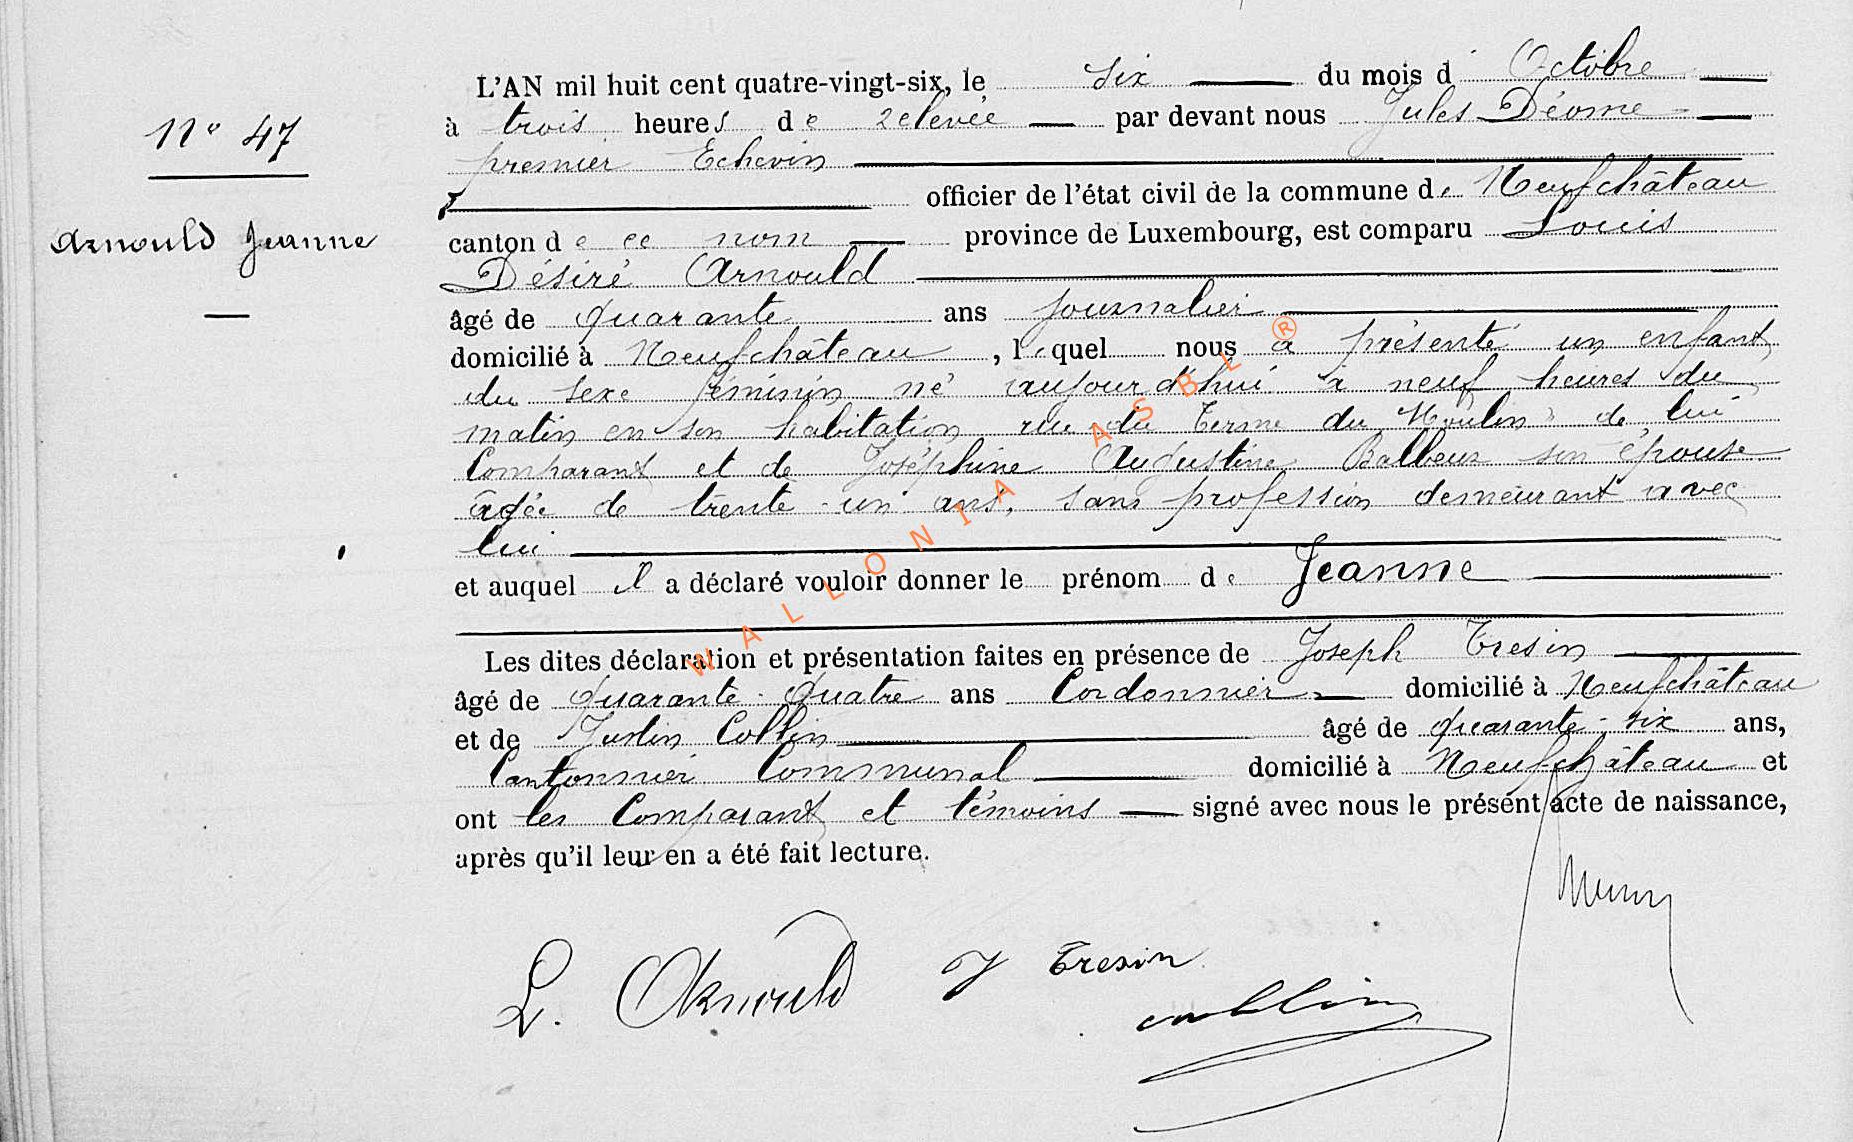 L'AN mil huit cent quatre-vingt-six, le six du mois d' Octobre
N° 47
à trois heures de relevée par devant nous Jules Déome
premier Echevin
officier de l'état civil de la commune de Neufchâteau
Arnould Jeanne
canton de ce nom province de Luxembourg, est comparu Louis
Désiré Arnould
âgé de quarante ans journalier
domicilié à Neufchâteau, lequel nous a présenté un enfant
du sexe féminin né aujourd'hui à neuf heures du
matin en son habitation rue du Terme du Moulin de lui
Comparant et de Joséphine Augustine Balbeur son épouse
âgée de trente-un ans, sans profession demeurant avec
lui
et auquel il a déclaré vouloir donner le prénom de Jeanne
Les dites déclaration et présentation faites en présence de Joseph Tresin
âgé de quarante-quatre ans Cordonnier domicilié à Neufchâteau
et de Justin Collin âgé de quarante-six ans,
Cantonnier Communal domicilié à Neufchâteau et
ont les Comparant et témoins signé avec nous le présent acte de naissance,
après qu'il leur en a été fait lecture.
L. Arnould J Tresin
Collin
WALLONIA ASBL ®